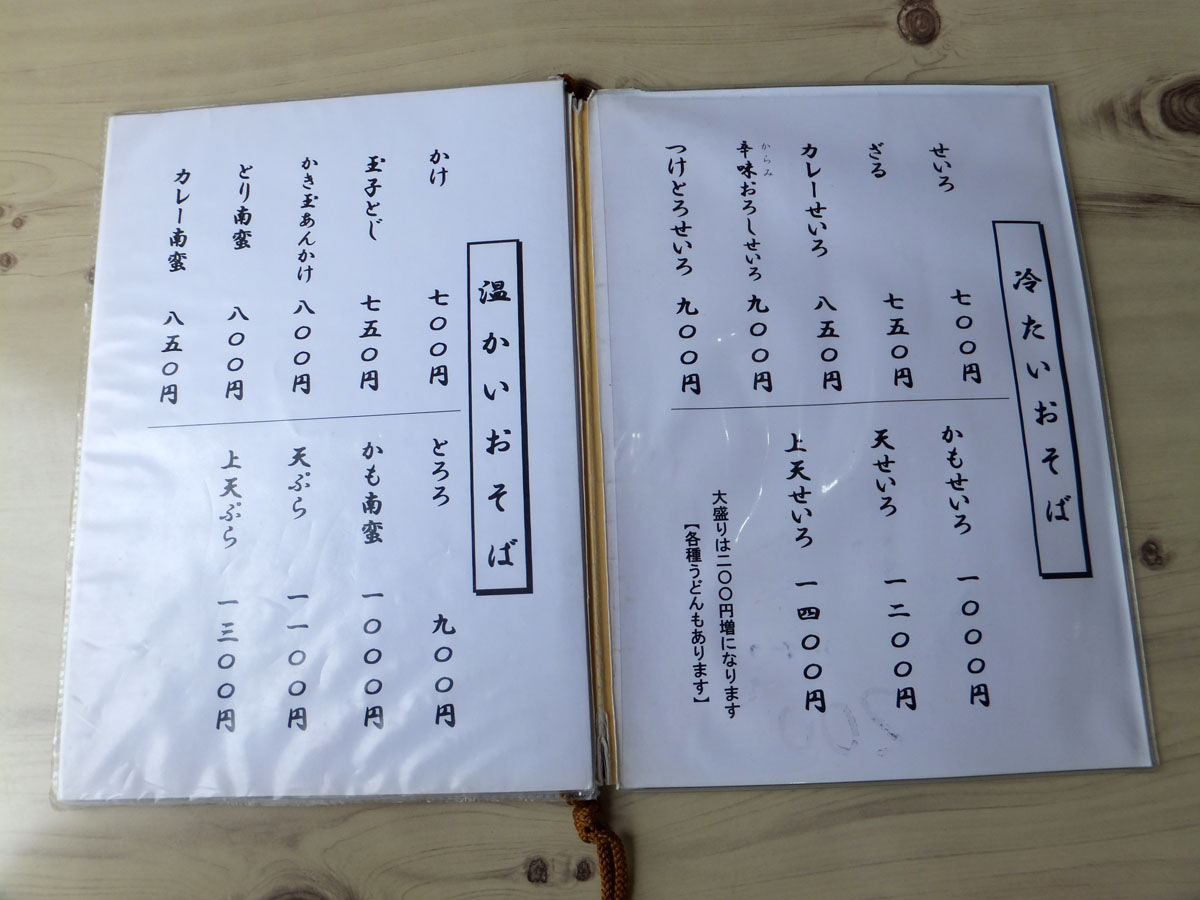 冷たいおそば
せいろ 七〇〇円
ざる 七五〇円
カレーせいろ 八五〇円
からみ
辛味おろしせいろ 九〇〇円
つけとろせいろ 九〇〇円
かもせいろ 一〇〇〇円
天せいろ 一二〇〇円
上天せいろ 一四〇〇円
大盛りは二〇〇円増になります
【各種うどんもあります】
温かいおそば
かけ 七〇〇円
玉子とじ 七五〇円
かき玉あんかけ 八〇〇円
とり南蛮 八〇〇円
カレー南蛮 八五〇円
とろろ 九〇〇円
かも南蛮 一〇〇〇円
天ぷら 一一〇〇円
上天ぷら 一三〇〇円